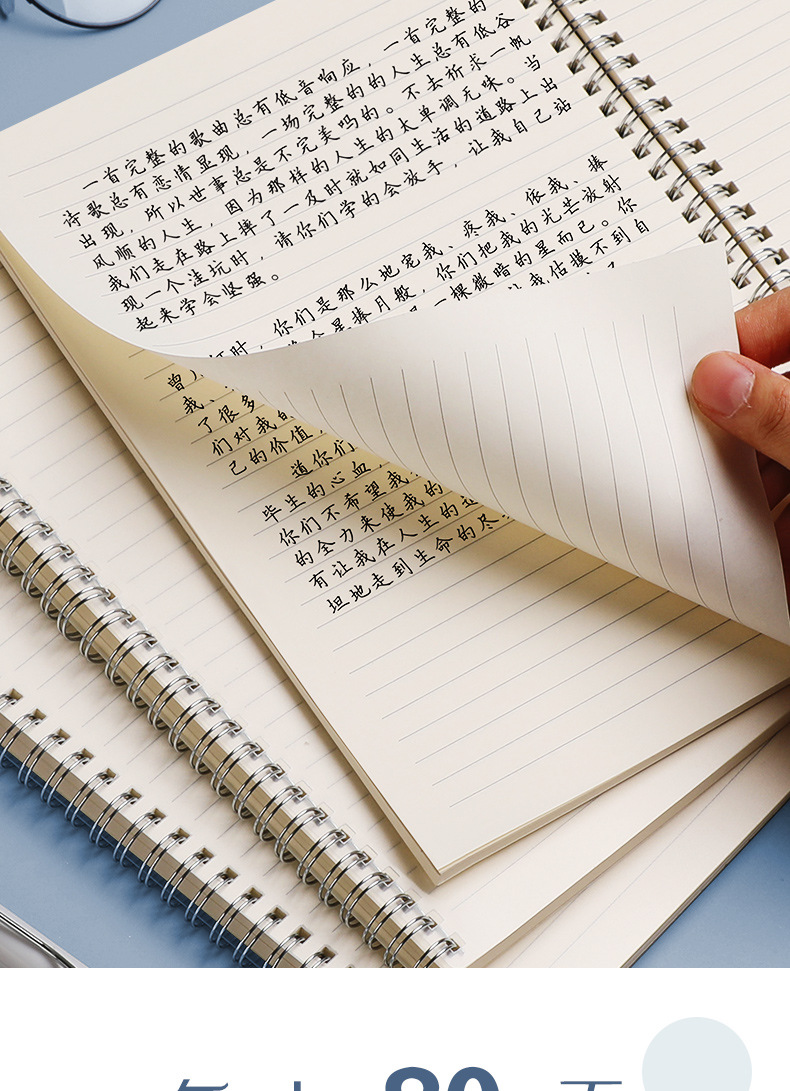 一首完整的歌曲总有低音响应，一首完整的
诗歌总有恋情显现，一场完整的的人生总有低谷
出现，所以世事总是不完美吗的。不去祈求一帆
风顺的人生，因为那样的人生的太单调无味。当
我们走在路上摔了一及时就如同生活的道路上出
现一个洼坑时，请你们学的会放手，让我自己站
起来学会坚强。
时，你们是那么地宠我、疼我、依我、捧
星捧月般，你们把我的光芒放射
一棵微暗的星而已。你
我估摸不到自
了很多
们对我自
己的价值，
道你们
毕生的心血，
你们不希望我
的全力来使我的
有让我在人生的道
坦地走到生命的尽
80